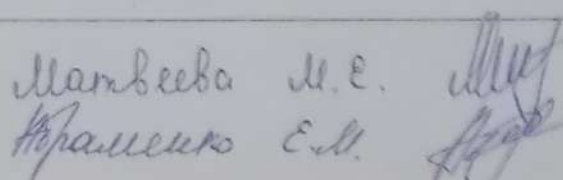 Матвеева М.Е.
Абраменко Е.М.